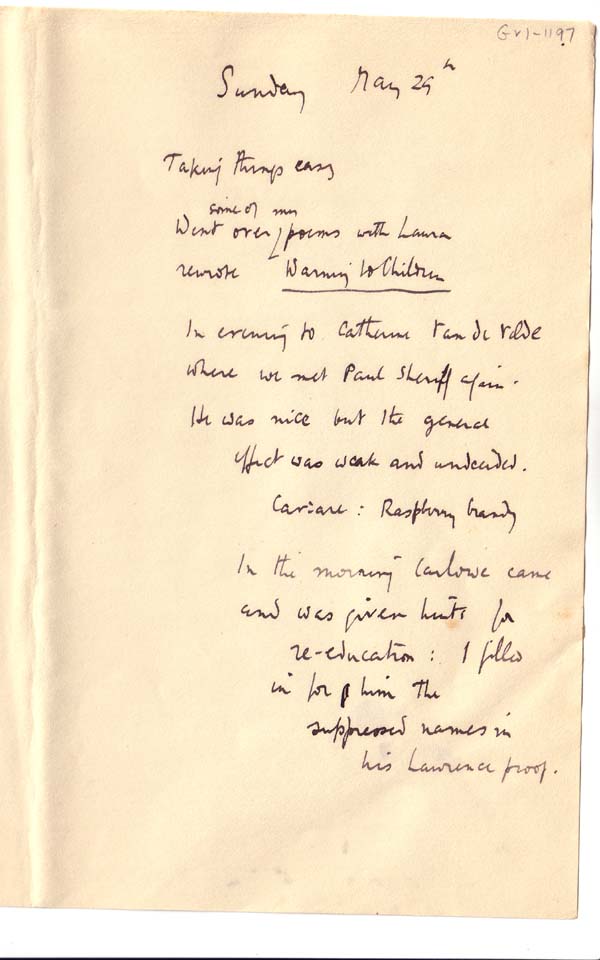 GV1-1197
Sunday May 29th
Taking things easy
some of my
Went over poems with Laura
rewrote Warning to Children
In evening to Catherine Van de Velde
where we met Paul Sheriff again.
He was nice but the general
effect was weak and undecided.
Caviare: Raspberry brandy
In the morning Carlowe came
and was given hints for
re-education: I filled
in for him the
suppressed names in
his Lawrence proof.